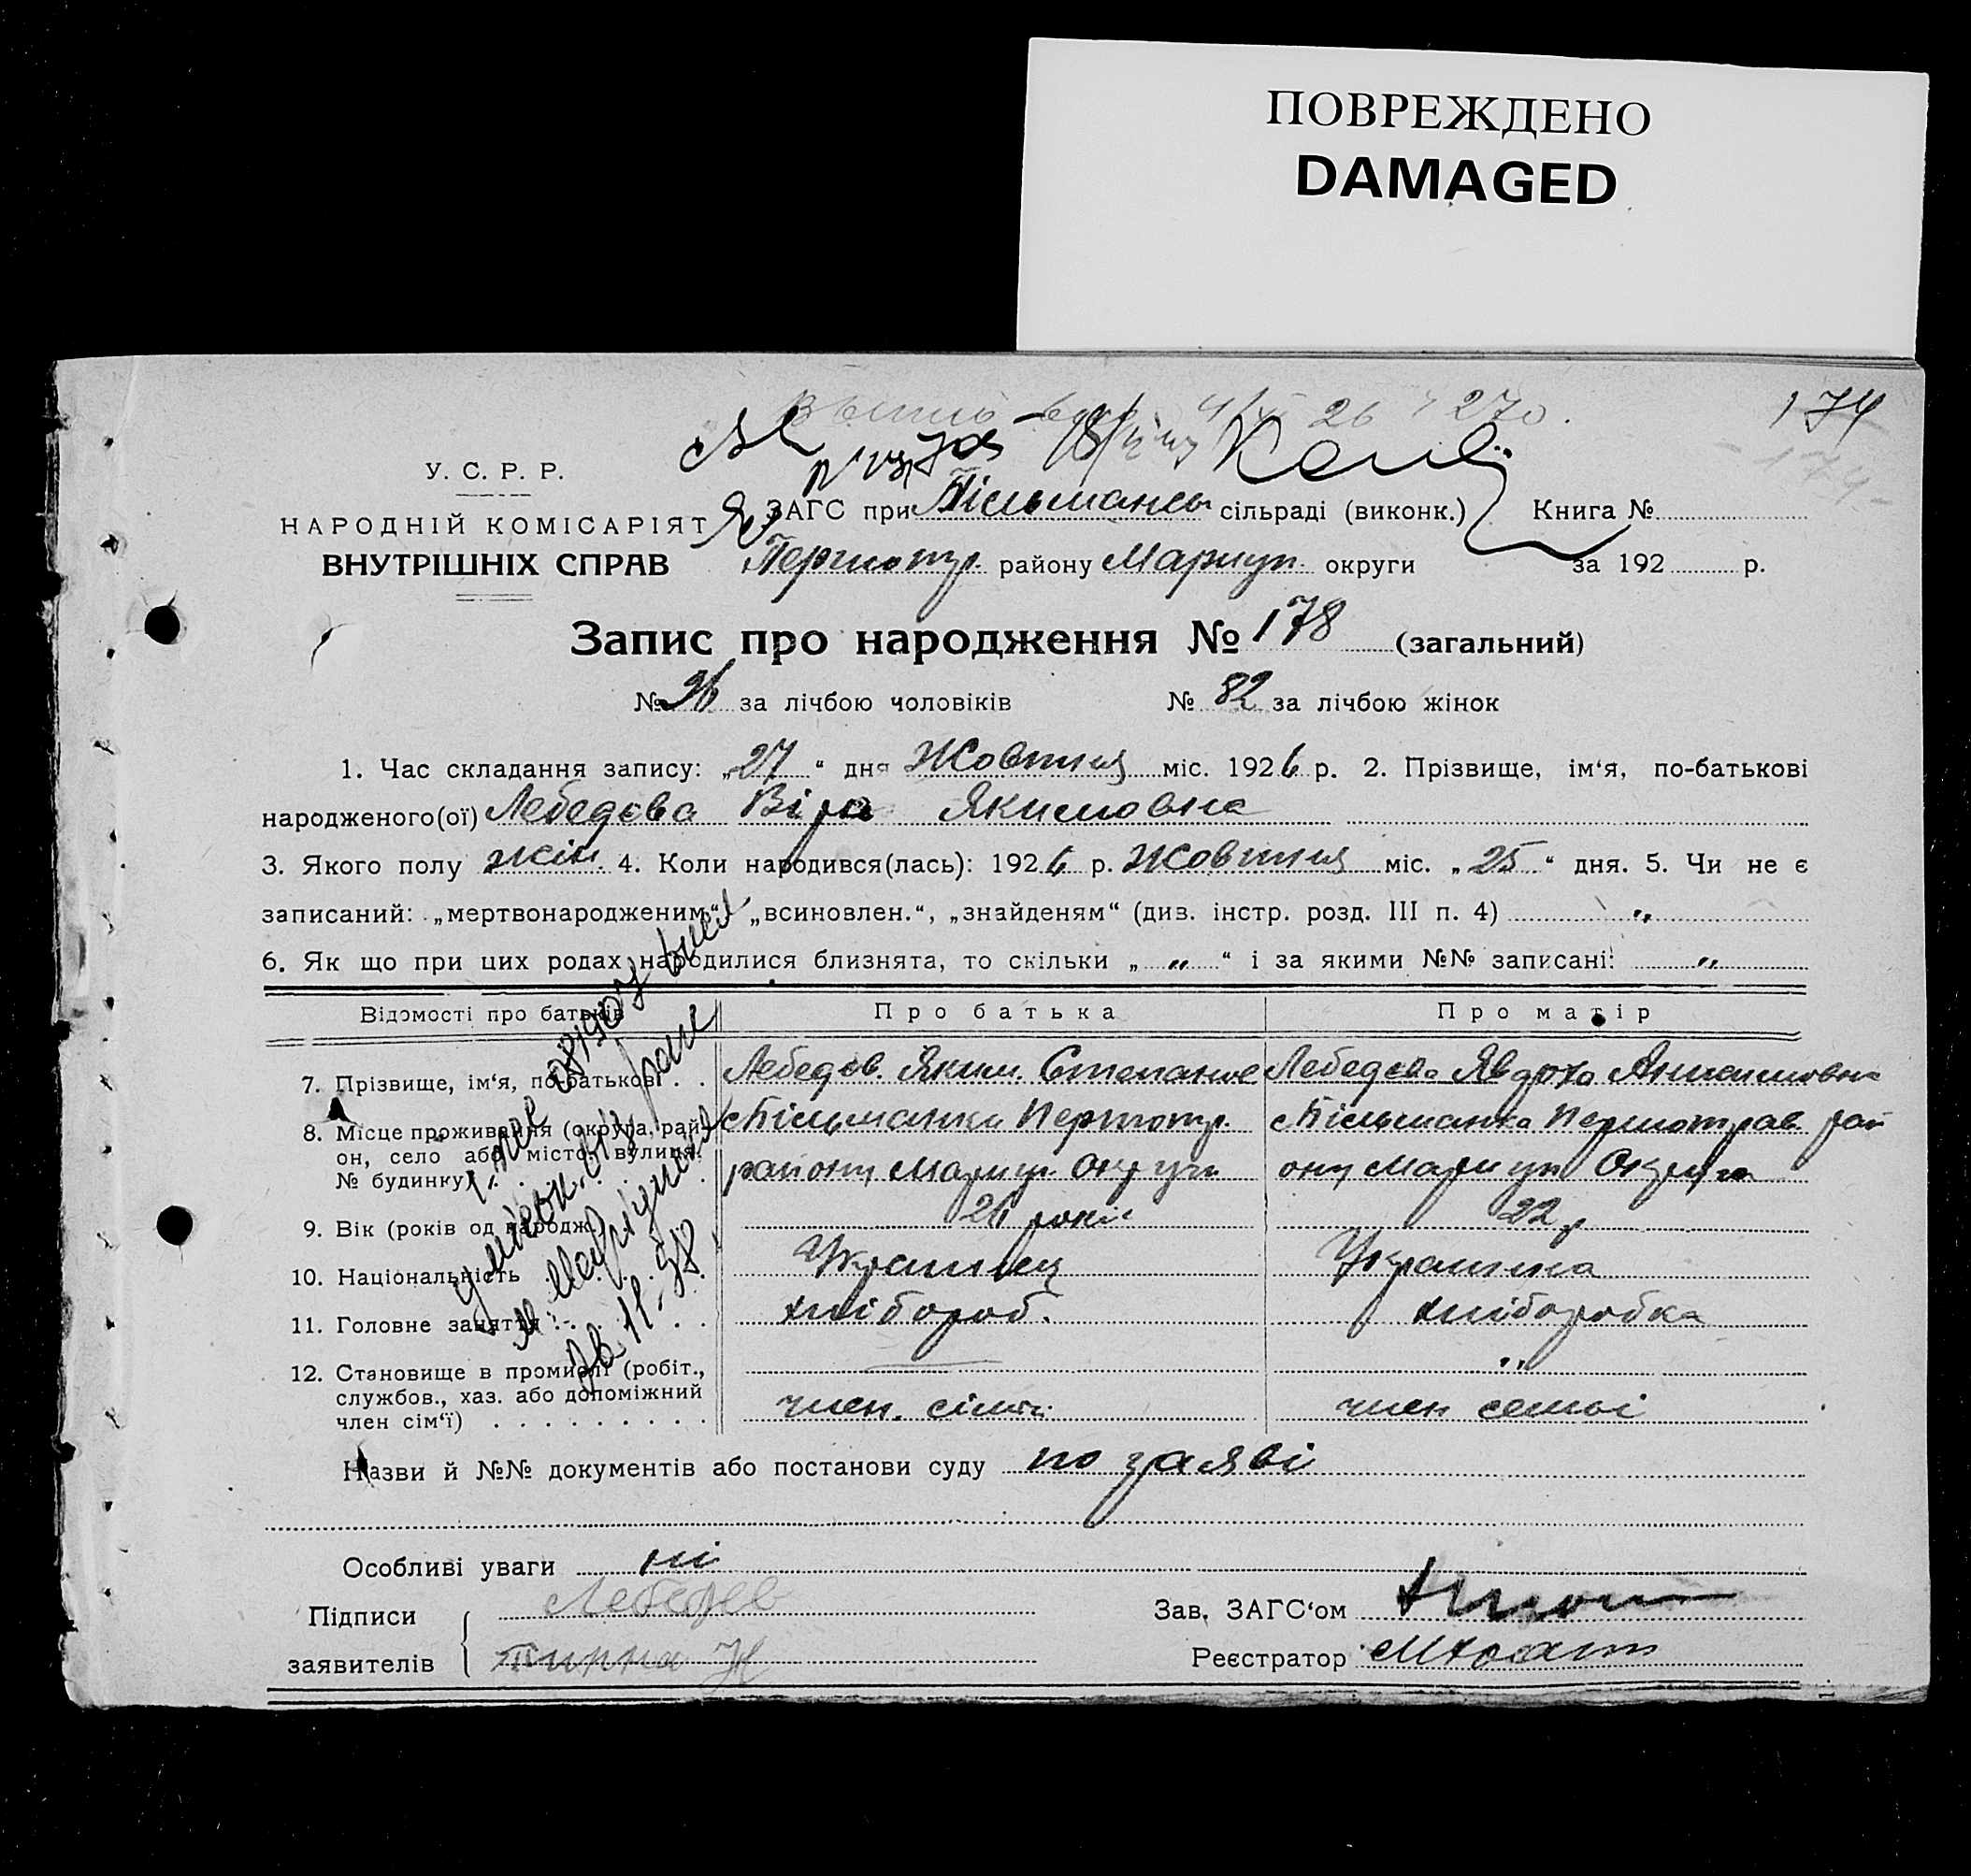 ПОВРЕЖДЕНО
DAMAGED
174
У. С. Р. Р.
НАРОДНІЙ КОМІСАРІЯТ
ВНУТРІШНІХ СПРАВ
ЗАГС при сільраді (виконк.) Книга №
району Мариуп. округи за 192 р.
Запис про народження № 178 (загальний)
№ 96 за лічбою чоловіків № 82 за лічбою жінок
1. Час складання запису: „27“ дня Жовтня міс. 1926 р. 2. Прізвище, ім‘я, по-батькові
народженого(ої) Лебедєва Віра Якимовна
3. Якого полу жін. 4. Коли народився(лась): 1926 р. Жовтня міс. „25“ дня. 5. Чи не є
записаний: „мертвонародженим“, „всиновлен.“, „знайденям“ (див. інстр. розд. III п. 4) „
6. Як що при цих родах народилися близнята, то скільки „ „ “ і за якими №№ записані: „
Відомості про батьків Про батька Про матір
7. Прізвище, ім‘я, по-батькові . . Лебедєв. Яким. Лебедєва Явдоха
8. Місце проживання (округа, рай-
он, село або місто, вулиця,
№ будинку)
району Мариуп. Округи
9. Вік (років од народж.) 26 років 22 р
10. Національність Украинец Украинка
11. Головне заняття хлібороб. хліборобка
12. Становище в промислі (робіт., „
службов., хаз. або допоміжний
член сім‘ї) член. сімї член семьї
Назви й №№ документів або постанови суду по заяві
Особливі уваги ні
Підписи Лебедев Зав. ЗАГС‘ом
заявителів Реєстратор